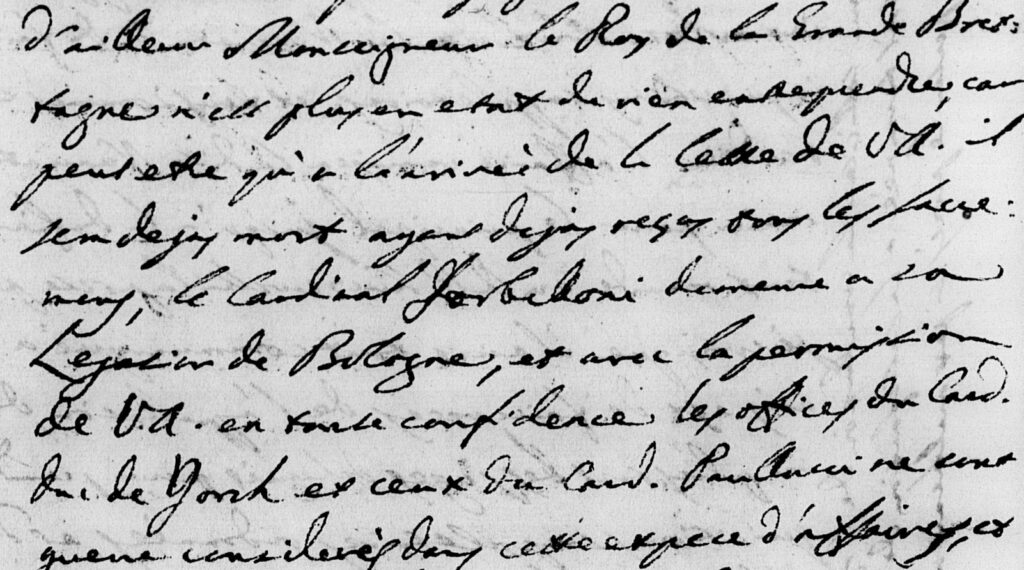 d'ailleurs Monseigneur le Roy de la Grande Bres=
tagne n'est plus en estat de rien entreprendre, car
peutestre qu'a l'arivée de la lettre de V.A. il
sera dejas mort ayant dejas reçus tous les sacre=
mens, le Cardinal Serbelloni demeure a sa
Legation de Bologne, et avec la permission
de V.A. en toute confidence les offices du Card.
duc de Yorck et ceux du Card. Paullucci ne sont
guerre considerés dans cette espece d'affaires, et